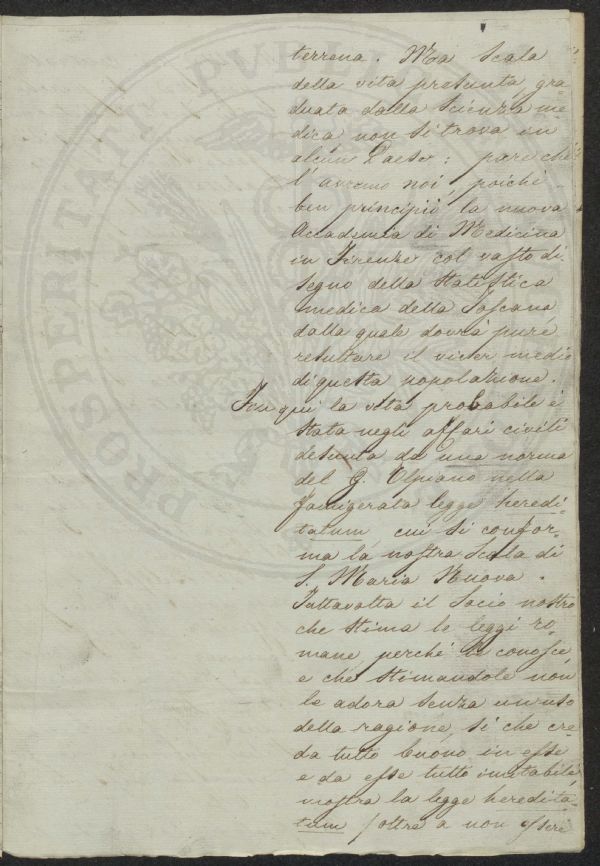 terrena. Ma Scala
della vita presunta gra-
duata dalla Scienza me-
dica non si trova in
alcun Paese: pare che
l'avremo noi, poiché
ben principiò la nuova
Accademia di Medicina
in Firenze col vasto di-
segno della Statistica
medica della Toscana
dalla quale dovrà pure
resultare il viver medio
di questa popolazione.
Fin qui la vita probabile è
stata negli affari civili
desunta da una norma
del G. Ulpiano nella
famigerata legge heredi-
tatum, cui si confor-
ma la nostra Scala di
S. Maria Nuova.
Tuttavolta il Socio nostro
che stima le leggi ro-
mane perché le conosce
e che stimandole non
le adora senza un uso
della ragione, sì che cre-
da tutto buono in esse
e da esse tutto imitabile,
mostra la legge heredita-
tum (oltre a non essere
PROSPERITATI PVBLI